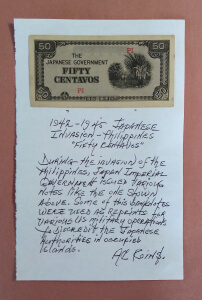 50
50
THE
JAPANESE GOVERNMENT
FIFTY
CENTAVOS
PI
PI
1942-1945 JAPANESE
INVASION - PHILIPPINES
"FIFTY CENTAVOS"
DURING THE INVASION OF THE
PHILIPPINES, JAPAN IMPERIAL
GOVERNMENT ISSUED VARIOUS
NOTES LIKE THE ONE SHOWN
ABOVE. SOME OF THIS BANKNOTES
WERE USED AS REPRINT FOR
VARIOUS US MILITARY OPERATIONS
TO DISCREDIT THE JAPANESE
AUTHORITIES IN OCCUPIED
ISLANDS.